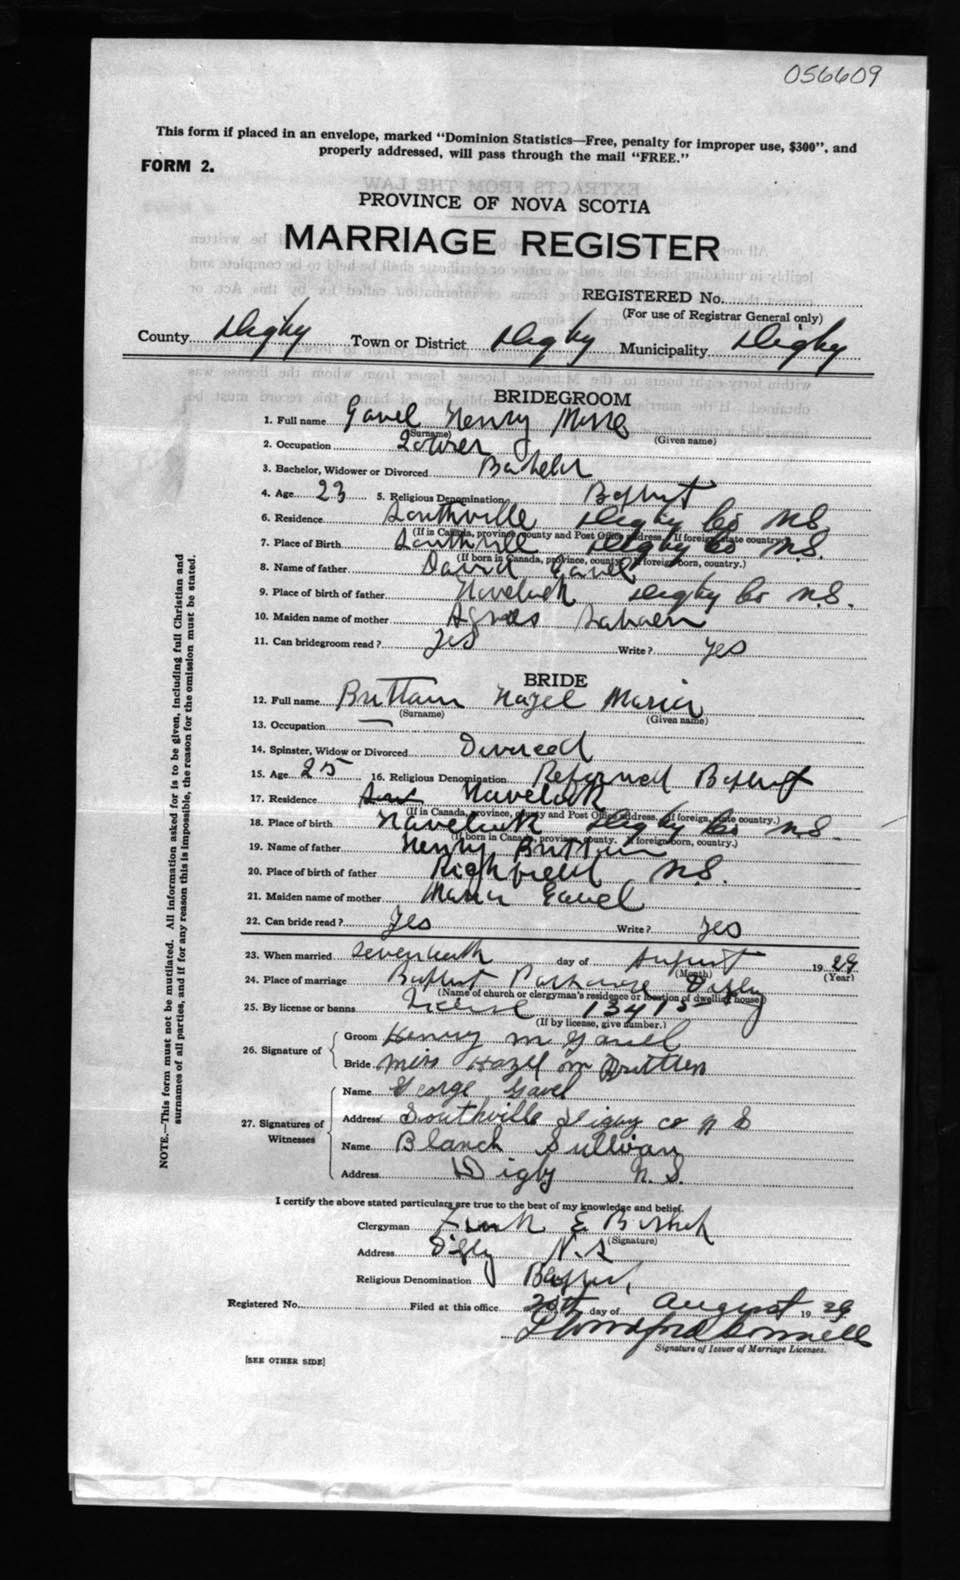 056609
This form if placed in an envelope, marked "Dominion Statistics—Free, penalty for improper use, $300", and
properly addressed, will pass through the mail "FREE."
FORM 2.
PROVINCE OF NOVA SCOTIA
MARRIAGE REGISTER
REGISTERED No.
(For use of Registrar General only)
County Digby Town or District Digby Municipality Digby
BRIDEGROOM
1. Full name Gavel Henry
(Surname) (Given name)
2. Occupation
3. Bachelor, Widower or Divorced Bachelor
4. Age 23 5. Religious Denomination Baptist
6. Residence Southville Digby Co N.S.
(If in Canada, province, county and Post Office address. If foreign, state country.)
7. Place of Birth Southville Digby Co N.S.
(If born in Canada, province, county. If foreign born, country.)
8. Name of father David Gavel
9. Place of birth of father Havelock Digby Co N.S.
10. Maiden name of mother Agnes
11. Can bridegroom read? Yes Write? Yes
BRIDE
12. Full name Brittain Hazel Maria
(Surname) (Given name)
13. Occupation —
14. Spinster, Widow or Divorced Divorced
15. Age 25 16. Religious Denomination Reformed Baptist
17. Residence Havelock
(If in Canada, province, county and Post Office address. If foreign, state country.)
18. Place of birth Havelock Digby Co N.S.
(If born in Canada, province, county. If foreign born, country.)
19. Name of father Henry Brittain
20. Place of birth of father Richfield N.S.
21. Maiden name of mother Maria Gavel
22. Can bride read? Yes Write? Yes
23. When married Seventeenth day of August 1929
(Month) (Year)
24. Place of marriage Baptist Parsonage Digby
(Name of church or clergyman's residence or location of dwelling house)
25. By license or banns License 13415
(If by license, give number.)
26. Signature of
Groom Henry M Gavel
Bride Miss Hazel M Britten
27. Signatures of Witnesses
Name George Gavel
Address Southville Digby Co N S
Name Blanch Sullivan
Address Digby N.S.
I certify the above stated particulars are true to the best of my knowledge and belief.
Clergyman E
(Signature)
Address Digby N.S
Religious Denomination Baptist
Registered No. Filed at this office 20th day of August 1929
Signature of Issuer of Marriage Licenses.
[SEE OTHER SIDE]
NOTE.—This form must not be mutilated. All information asked for is to be given, including full Christian and
surnames of all parties, and if for any reason this is impossible, the reason for the omission must be stated.